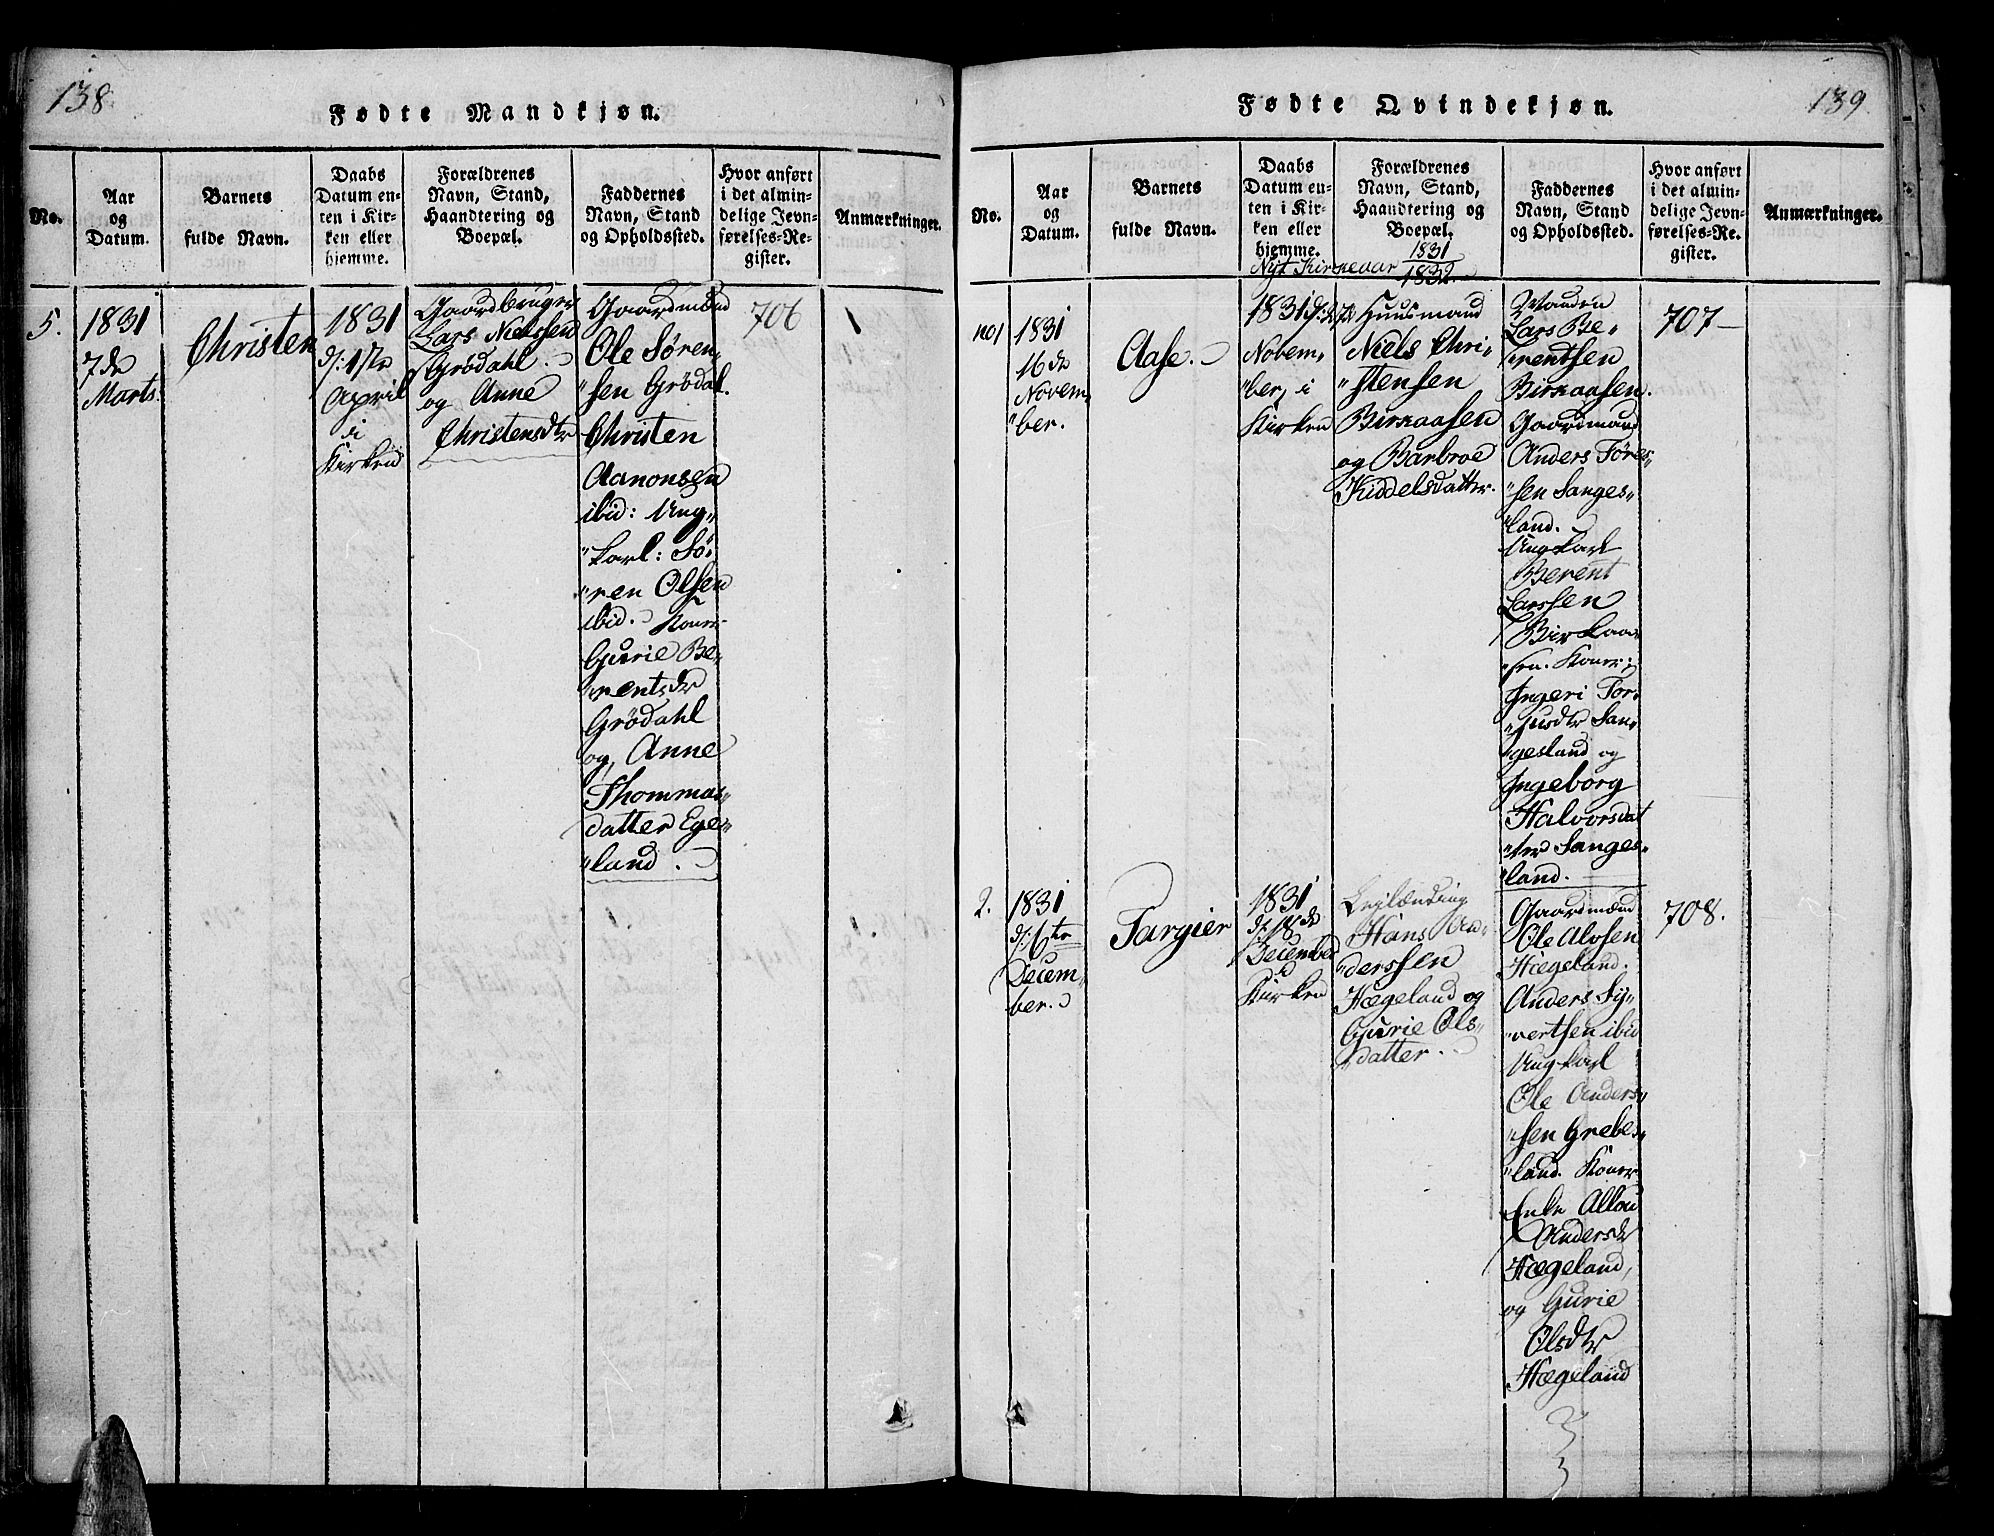 138
Fødte Mandkjøn.
No.
Aar
og
Datum.
Barnets
fulde Navn.
Daabs
Datum en-
ten i Kir-
ken eller
hjemme.
Forældrenes
Navn, Stand,
Haandtering og
Boepæl.
Faddernes
Navn, Stand
og Opholdssted.
Hvor anført
i det almin-
delige Jevn-
førelses-Re-
gister.
Anmærkninger.
5.
1831
7de
Marts.
Christen
1831
d: 1ste
April
i
Kirken
Gaardbruger
Lars Nielssen
Grödahl
og Anne
Christensdtr
Gaardmænd
Ole Sören-
"sen Grödal.
Christen
Aanonsen
ibid: Ung-
"karl: Sö-
"ren Olsen
ibid. Koner
Gurie Be-
"rentsdr
Grödahl
og, Anne
Thommas-
datter Ege-
"land.
706
139
Fødte Qvindekjøn.
No.
Aar
og
Datum.
Barnets
fulde Navn.
Daabs
Datum en-
ten i Kir-
ken eller
hjemme.
Forældrenes
Navn, Stand,
Haandtering og
Boepæl.
Faddernes
Navn, Stand
og Opholdssted.
Hvor anført
i det almin-
delige Jevn-
førelses-Re-
gister.
Anmærkninger.
Nyt Kirkeaar 1831
1832
no1
1831
16de
Novem-
"ber.
Aase.
1831
Novem-
"ber, i
Kirken
Huusmand
Niels Chri-
"stensen
Birkaasen
og Barbroe
Kiddelsdatter.
Lars Be-
"rentsen
Birkaasen.
Gaardmand
Anders Töres-
"sen Sanges-
"land.
Ungkarl
Berent
Larssen
Birkaa-
"sen. Koner:
Ingeri Tor-
"jusdtr San-
"gesland og
Ingeborg
Halvorsdat
"ter Sanges-
"land.
707
2.
1831
d: 6te
Decem-
ber.
Targier
1831
d: 18de
December
i
Kirken
Leilænding
Hans An-
"derssen
Hægeland og
Gurie Ols-
"datter.
Gaardmænd
Ole Alvsen
Hægeland.
Anders Sy-
"vertsen ibid
Ungkarl
Ole Anders-
"sen Grebes-
"land. Koner
Enke Allou
Andersdr
Hægeland,
og Gurie
Olsdtr
Hægeland
708.